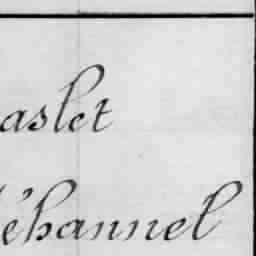 aslet
éhannel